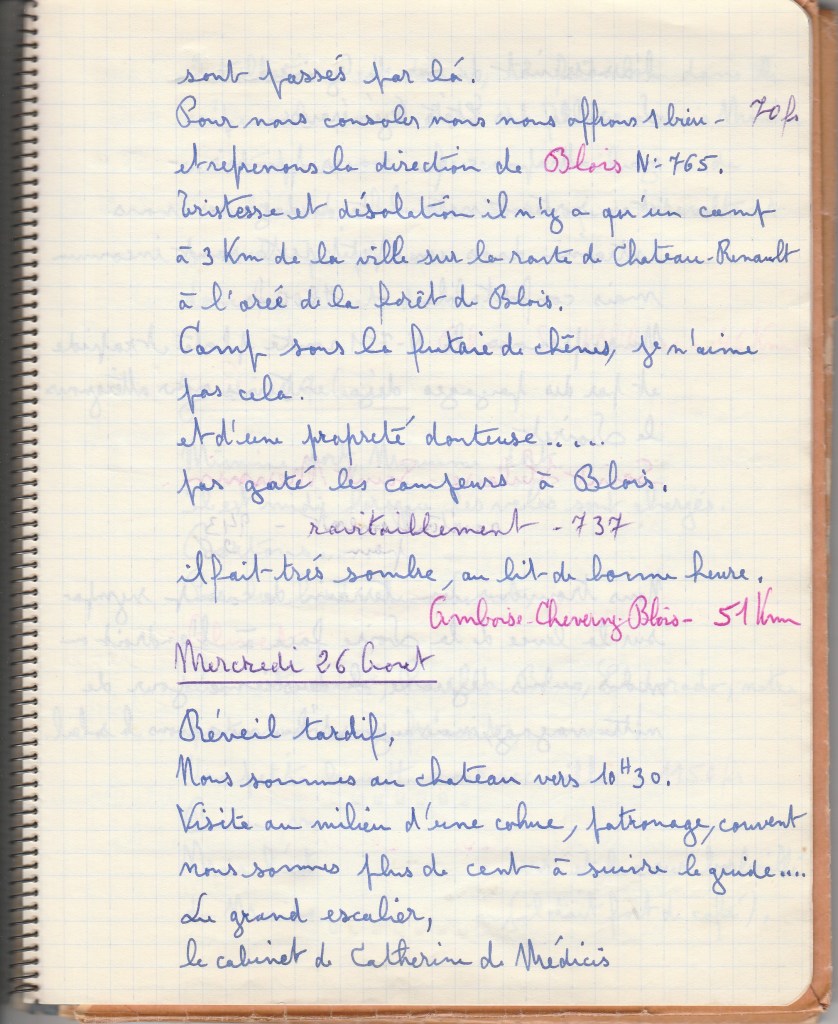 sont passés par là.
Pour nous consoler nous nous offrons 1 bière - 70 fs
et reprenons la direction de Blois N. 765.
Tristesse et désolation il n'y a qu'un camp
à 3 Km de la ville sur la route de Chateau-Renault
à l'orée de la forêt de Blois.
Camp sous la futaie de chênes, je n'aime
pas cela.
et d'une propreté douteuse.....
pas gaté les campeurs à Blois.
ravitaillement - 737
il fait très sombre, au lit de bonne heure.
Amboise-Cheverny-Blois - 51 Km
Mercredi 26 Aout
Réveil tardif,
Nous sommes au chateau vers 10H30.
Visite au milieu d'une cohue, patronage, couvent
nous sommes plus de cent à suivre le guide....
Le grand escalier,
le cabinet de Catherine de Médicis